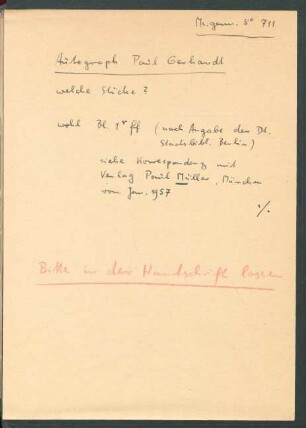 Ms. germ. 8° 711
Autograph Paul Gerhardt
welche Stücke?
wohl Bl. 1r ff (nach Angabe der Dt.
Staatsbibl. Berlin)
siehe Korrespondenz mit
Verlag Paul Müller, München
vom Jan. 1957
./.
Bitte in der Handschrift lassen